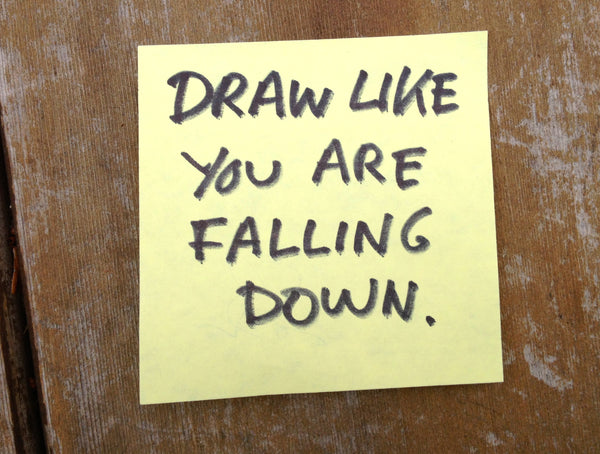 DRAW LIKE
YOU ARE
FALLING
DOWN.